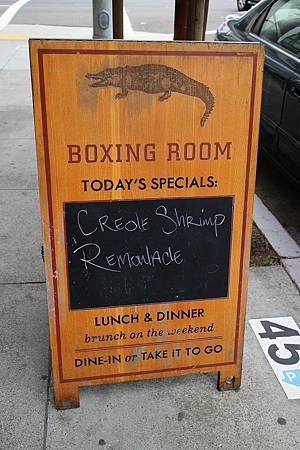 BOXING ROOM
TODAY'S SPECIALS:
CREOLE SHRIMP
REMOULADE
LUNCH & DINNER
brunch on the weekend
DINE-IN or TAKE IT TO GO
45
P